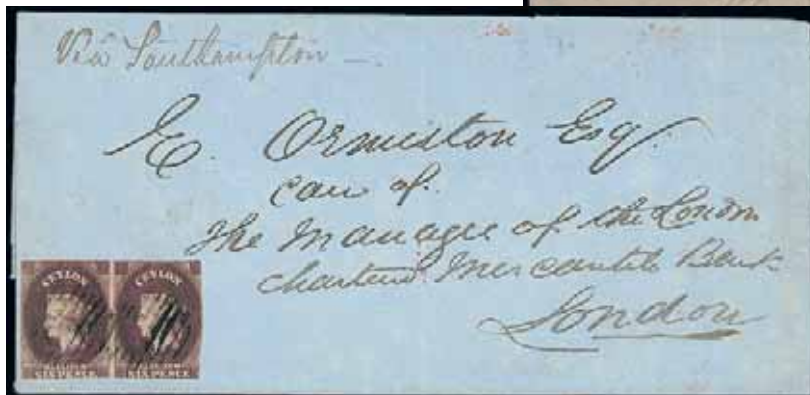 Via Southampton
E. Ormiston Esq.
care of.
The Manager of the London
Chartered Mercantile Bank
London
CEYLON CEYLON
SIX PENCE SIX PENCE